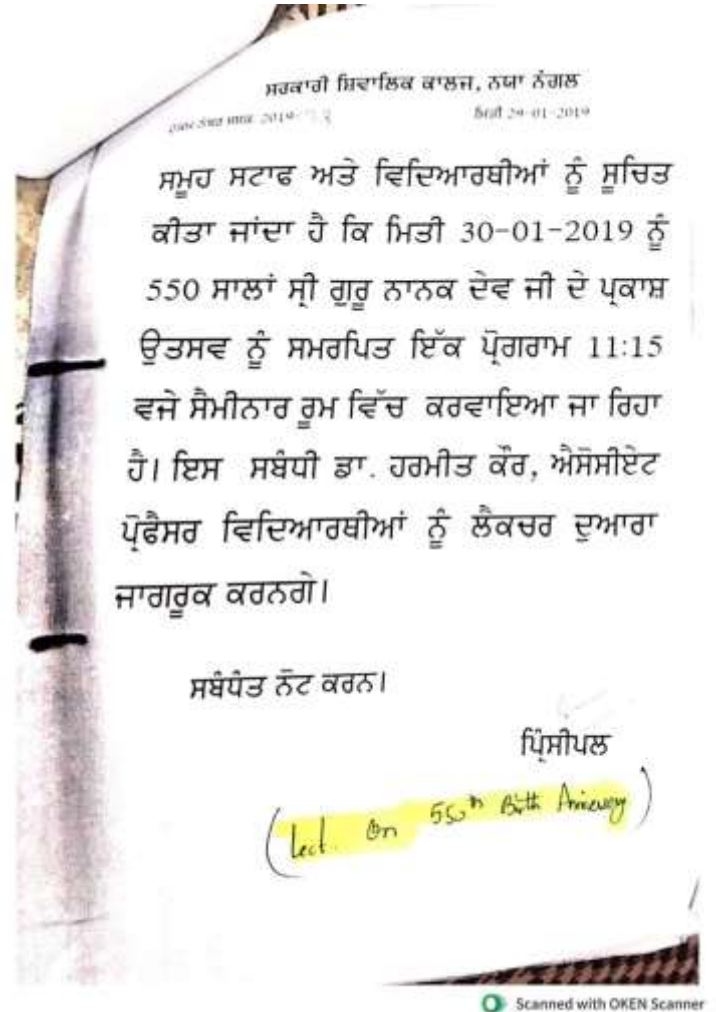 ਸਰਕਾਰੀ ਸ਼ਿਵਾਲਿਕ ਕਾਲਜ, ਨਯਾ ਨੰਗਲ
2019- ਮਿਤੀ 29-01-2019
ਸਮੂਹ ਸਟਾਫ ਅਤੇ ਵਿਦਿਆਰਥੀਆਂ ਨੂੰ ਸੂਚਿਤ
ਕੀਤਾ ਜਾਂਦਾ ਹੈ ਕਿ ਮਿਤੀ 30-01-2019 ਨੂੰ
550 ਸਾਲਾਂ ਸ੍ਰੀ ਗੁਰੂ ਨਾਨਕ ਦੇਵ ਜੀ ਦੇ ਪ੍ਰਕਾਸ਼
ਉਤਸਵ ਨੂੰ ਸਮਰਪਿਤ ਇੱਕ ਪ੍ਰੋਗਰਾਮ 11:15
ਵਜੇ ਸੈਮੀਨਾਰ ਰੂਮ ਵਿੱਚ ਕਰਵਾਇਆ ਜਾ ਰਿਹਾ
ਹੈ। ਇਸ ਸਬੰਧੀ ਡਾ. ਹਰਮੀਤ ਕੌਰ, ਐਸੋਸੀਏਟ
ਪ੍ਰੋਫੈਸਰ ਵਿਦਿਆਰਥੀਆਂ ਨੂੰ ਲੈਕਚਰ ਦੁਆਰਾ
ਜਾਗਰੂਕ ਕਰਨਗੇ।
ਸਬੰਧੰਤ ਨੋਟ ਕਰਨ।
ਪ੍ਰਿੰਸੀਪਲ
(Lect. On 550th Birth )
Scanned with OKEN Scanner